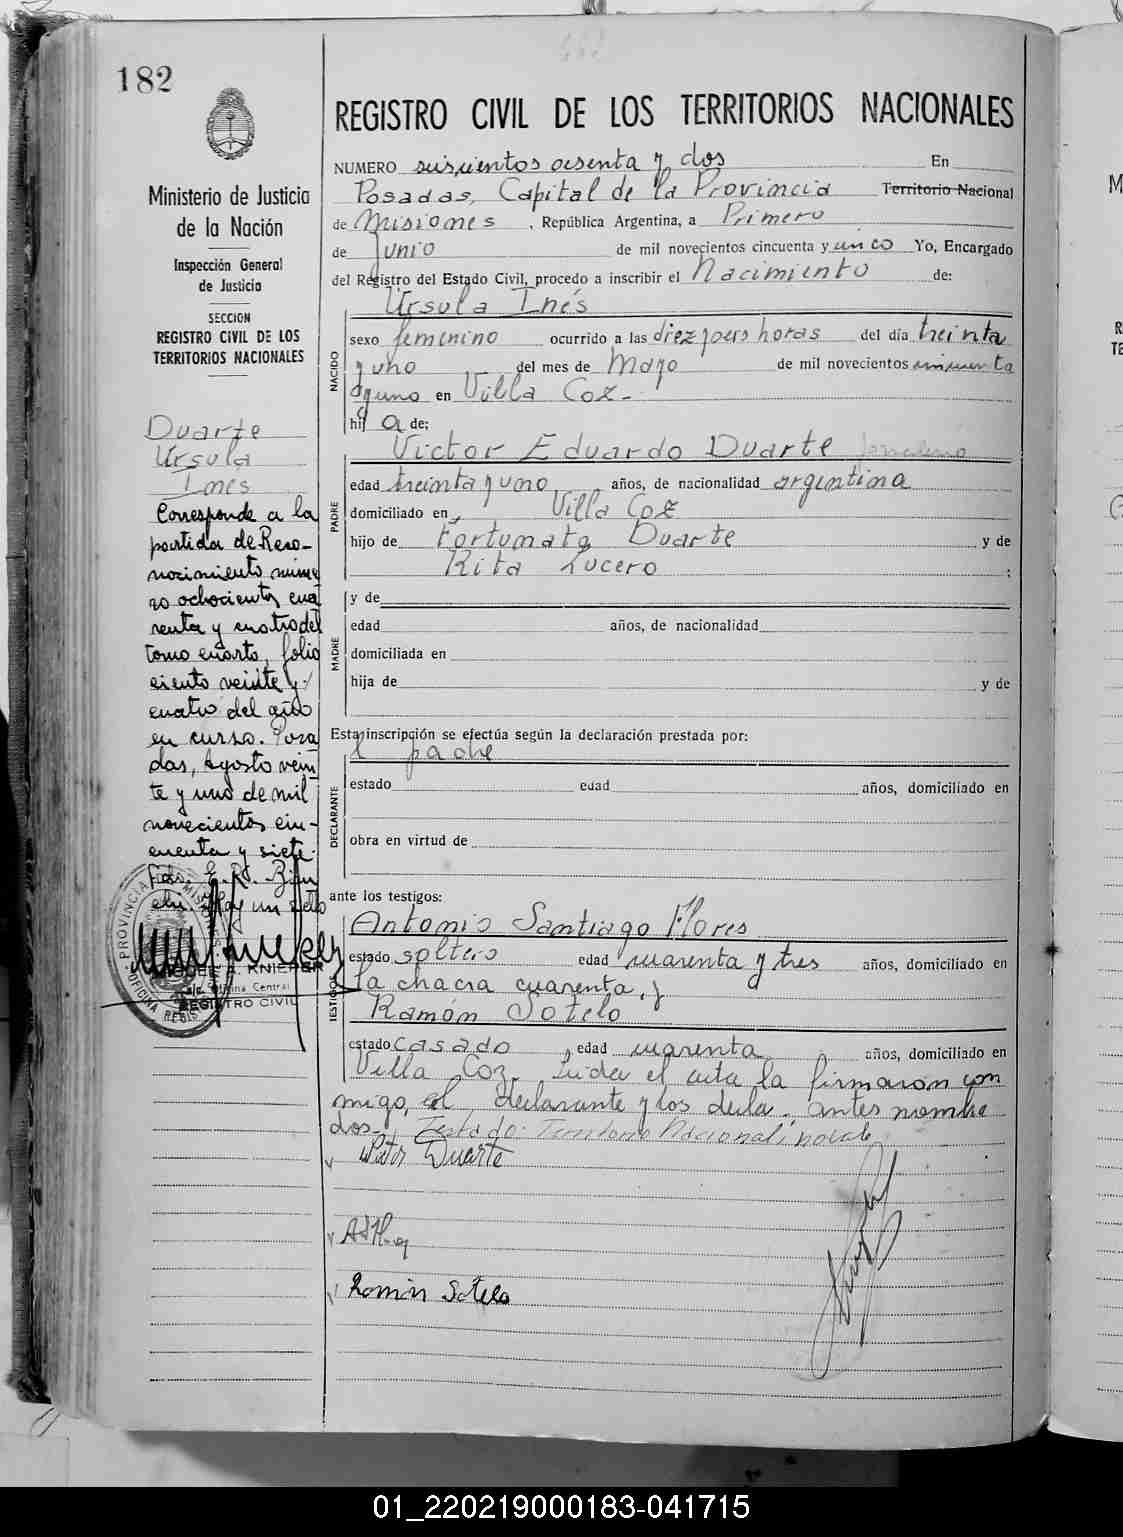 182
Ministerio de Justicia
de la Nación
Inspección General
de Justicia
SECCION
REGISTRO CIVIL DE LOS
TERRITORIOS NACIONALES
Duarte
Ursula
Inés
Corresponde a la
partida de Reco-
nocimiento núme
ro ochocientos cua
renta y cuatro del
tomo cuarto, folio
ciento veinte y
cuatro del año
en curso. Posa
das, Agosto vein
te y uno de mil
novecientos cin-
cuenta y siete.
Fdo. E. R.
Hay un sello
PROVINCIA MISIONES
OFICINA REGIS
MIGUEL A. KNIEPER
Oficina Central
REGISTRO CIVIL
REGISTRO CIVIL DE LOS TERRITORIOS NACIONALES
NUMERO seiscientos sesenta y dos En
Posadas, Capital de la Provincia Territorio Nacional
de Misiones, República Argentina, a Primero
de Junio de mil novecientos cincuenta y unco Yo, Encargado
del Registro del Estado Civil, procedo a inscribir el Nacimiento de:
Ursula Inés
NACIDO
sexo femenino ocurrido a las diez horas del día treinta
y uno del mes de Mayo de mil novecientos cincuenta
y uno en Villa Coz-
hij a de:
Victor Eduardo Duarte
PADRE
edad treinta y uno años, de nacionalidad argentina
domiciliado en Villa Coz
hijo de Fortunato Duarte y de
Rita Lucero ;
MADRE
y de
edad años, de nacionalidad
domiciliada en
hija de y de
Esta inscripción se efectúa según la declaración prestada por:
el padre
DECLARANTE
estado edad años, domiciliado en
obra en virtud de
ante los testigos:
TESTIGOS
Antonio Santiago Flores
estado soltero edad cuarenta y tres años, domiciliado en
la chacra cuarenta, y
Ramón Sotelo
estado casado, edad cuarenta años, domiciliado en
Villa Coz. Leida el acta la firmaron con
migo, el declarante y los testigos antes nombra
dos- Testado: Territorio Nacional, no vale
Victor Duarte
Ramón Sotelo
01_220219000183-041715